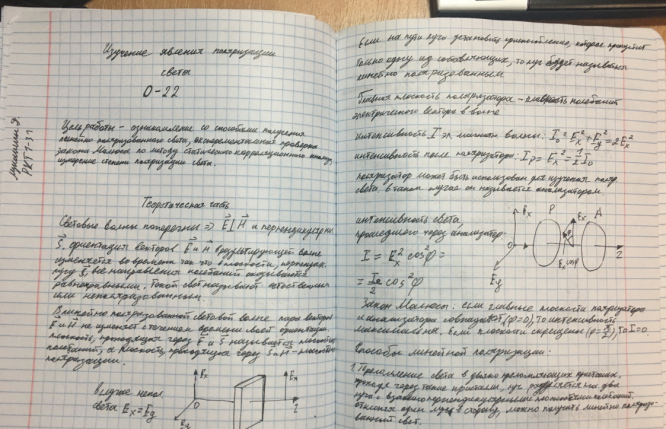 Изучение явления поляризации
света
О-22
Цель работы - ознакомление со способами получения
линейно поляризованного света, экспериментальная проверка
закона Малюса по методу статического корреляционного анализа,
измерение степени поляризации света.
Теоретическая часть
Световые волны поперечны => E⊥H и перпендикулярны
S. ориентация векторов E и H в
изменяется во времени так что в плоскости, перпендик.
все направления колебаний оказываются
равновероятными, такой свет называют естественным
или неполяризованным.
В линейно поляризованной световой волне пара векторов
E и H не изменяет с течением времени своей ориентации.
плоскость, проходящая через E и S называется плоскостью
колебаний, а плоскость, проходящая через S и H - плоскостью
поляризации.
света Ex = Ey
Ex
O
Ey
Ex
z
Если на пути луча установить приспособление, которое пропустит
только одну из составляющих, то луч будет называться
линейно поляризованным
Главная плоскость поляризатора - плоскость колебаний
электрического вектора в волне
интенсивность I волны: I₀ = Ex² + Ey² = 2Ex²
интенсивность после поляризатора: Ip = Ex² = 1/2 I₀
поляризатор может быть использован для изучения поляр.
света, в таком случае он называется анализатором.
интенсивность света,
прошедшего через анализатор:
I = Ex² cos²φ =
= I₀/2 cos²φ
Ex
P
A
O
Ey
Ex cosφ
z
Закон Малюса: если главные плоскости поляризатора
и анализатора совпадают (φ=0), то интенсивность
максимальна. Если плоскости скрещены (φ=π/2), то I=0.
способы линейной поляризации:
1. Преломление света в двояко преломляющих кристаллах,
проходя через такие кристаллы, луч разделяется на два
луча с взаимно перпендикулярными плоскостями колебаний.
отклонив один луч в сторону, можно получить линейно поляризо-
ванный свет.